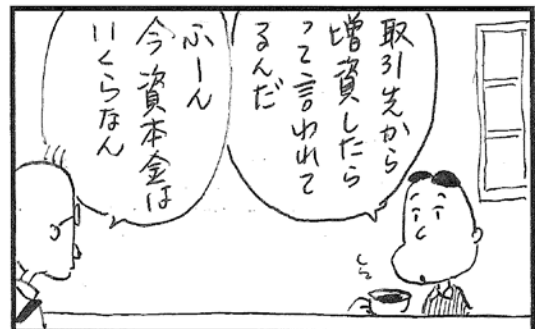 取引先から
増資したら
って言われて
るんだ
ふーん
今資本金は
いくらなん